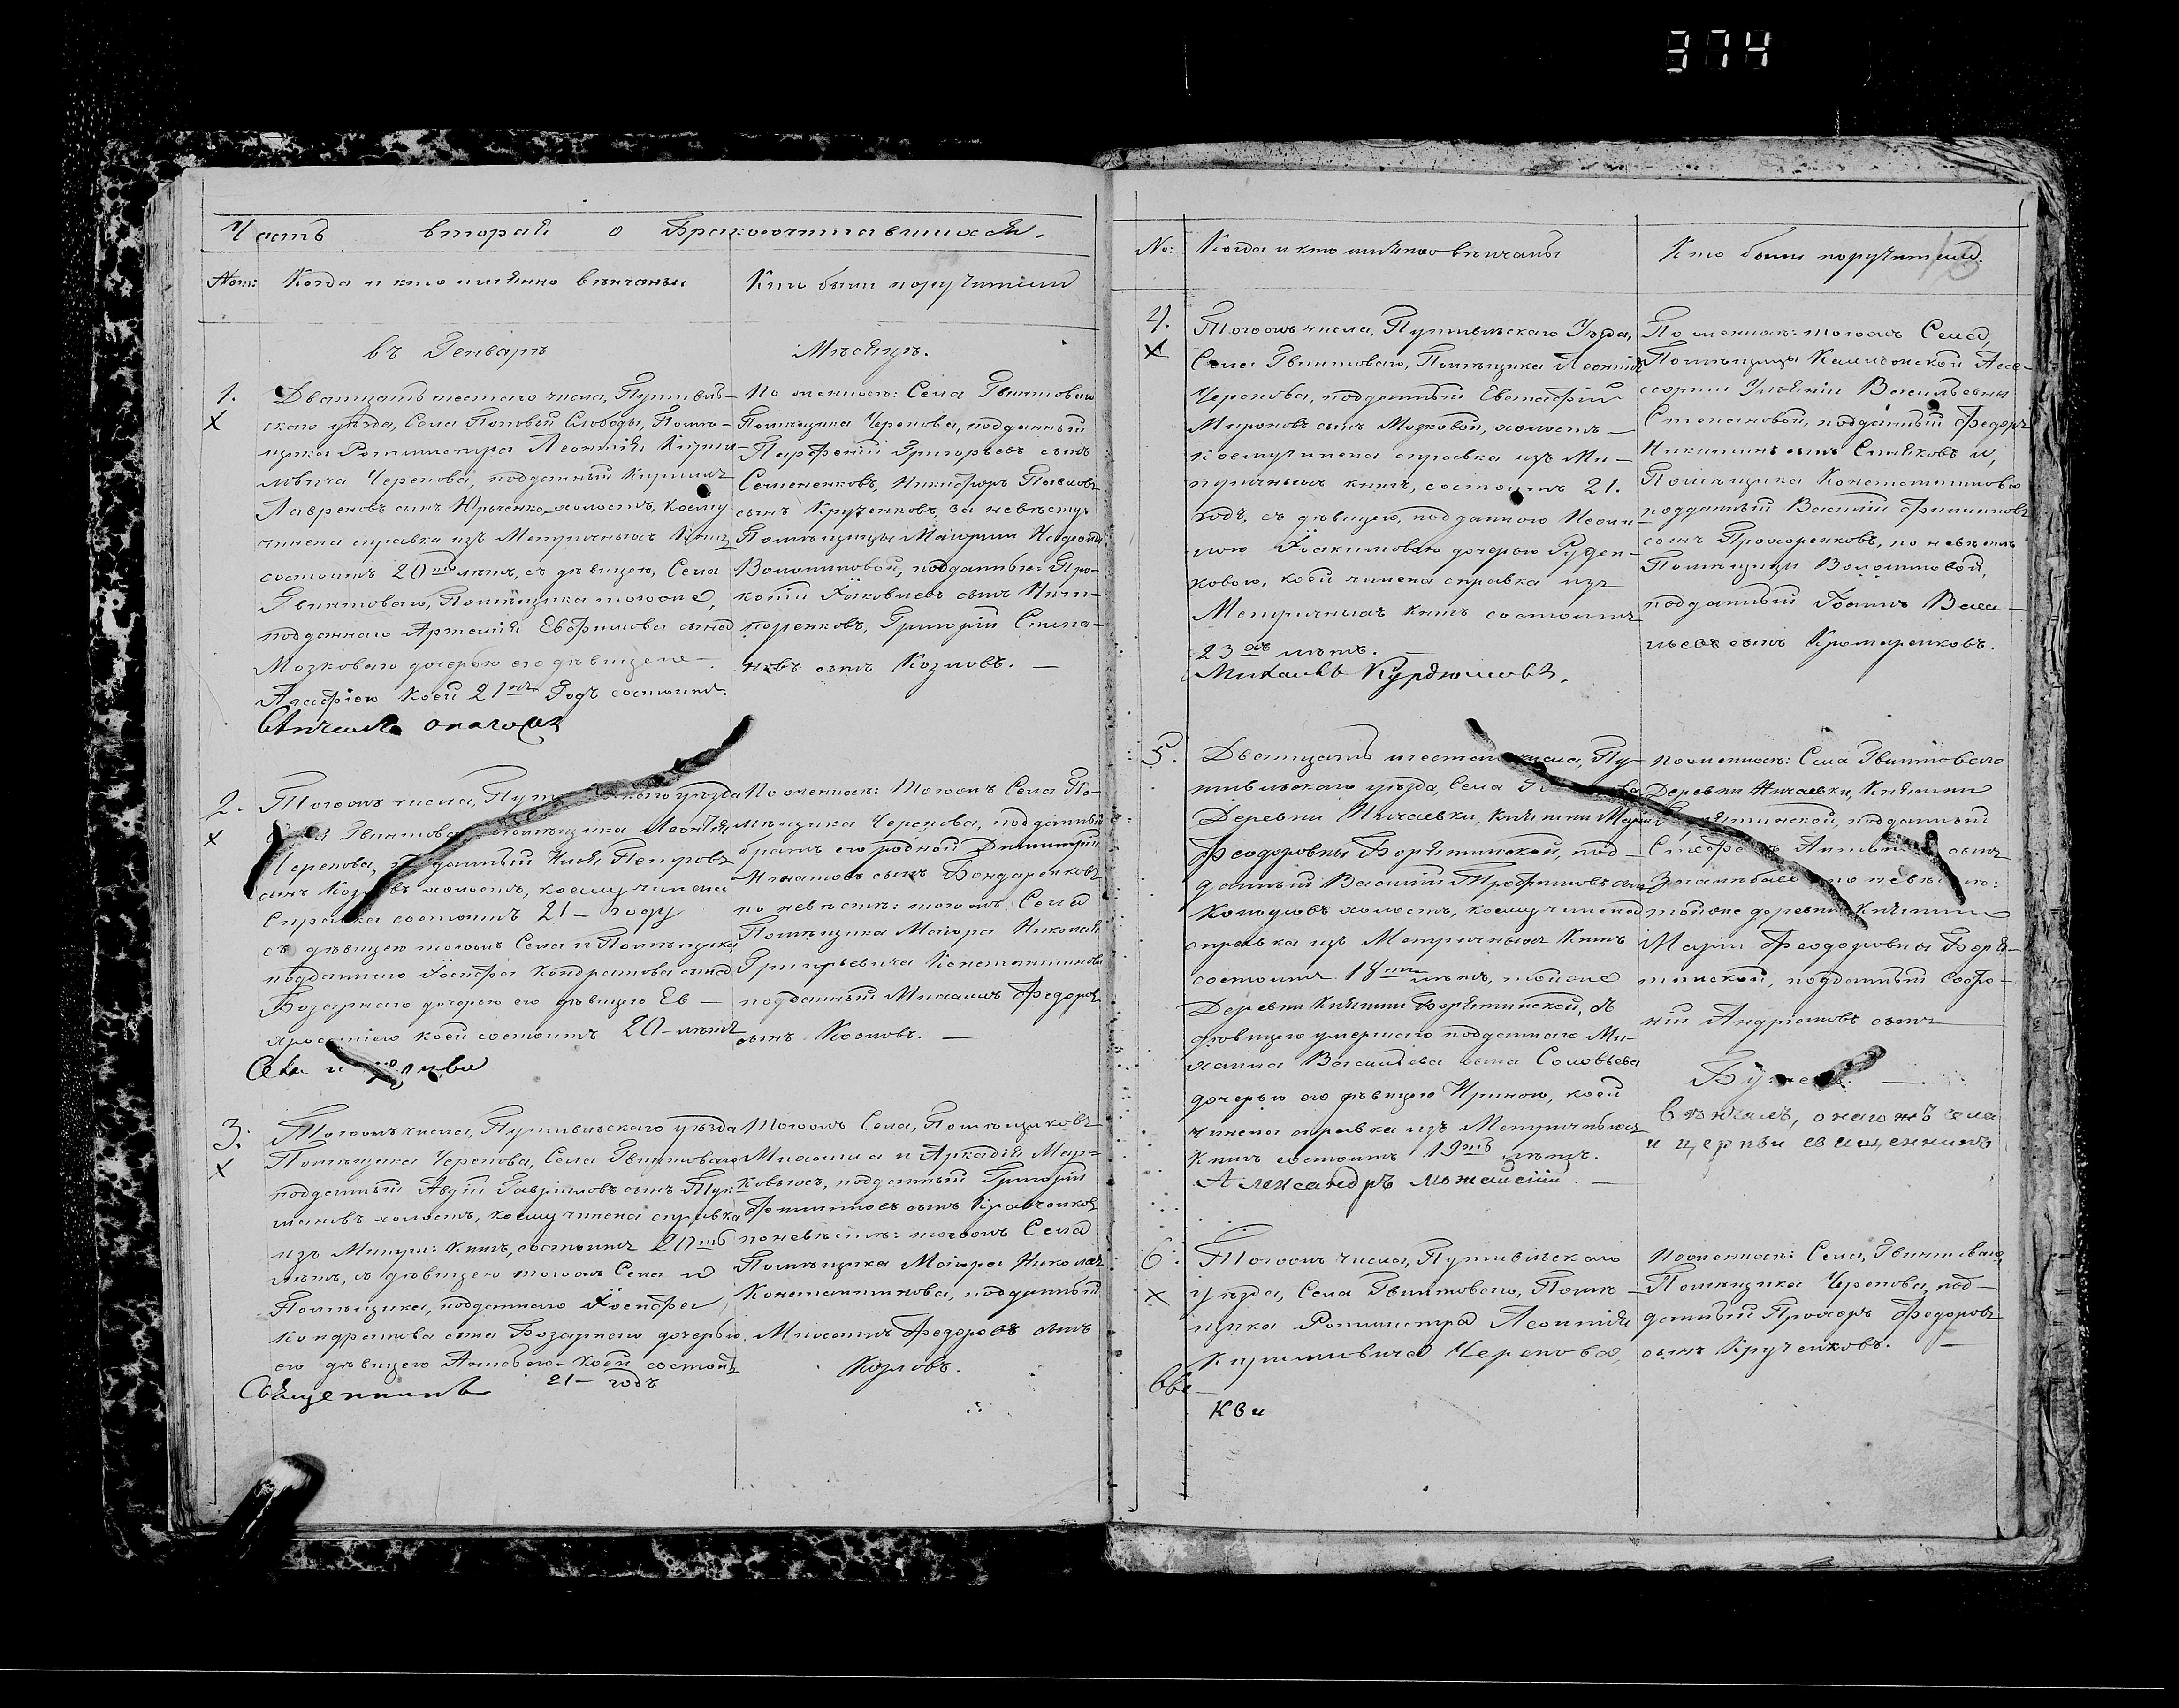 374
Часть вторая о Бракосочитавшихся.
Ном: Когда и кто имянно венчаны
Кто были поручители
въ Генваръ
Мѣсяцѣ.
1.
Х
Дватцать шестаго числа, Путивль-
скаго уѣзда, Села Поповой Слободы, Помѣ-
щика Ротмистра Леонтія Кирил-
ловича Черепова, подданный Кириллъ
Лавреновъ сынъ Юрченко, холостъ, коему
чинена справка изъ Метричныхъ Книгъ
состоитъ 20 лѣтъ, съ дѣвицею, Села
Гвинтоваго, Помѣщика тогоже,
подданнаго Артемія Евфимова сына
Мозковаго дочерью его дѣвицею
Агафіею коей 21 Годъ состоитъ.
По женихѣ: Села Гвинтоваго
Помѣщика Черепова, подданный
Парфеній Григорьевъ сынъ
Семененковъ, Никифоръ Павловъ
сынъ Крученковъ, за невѣсту:
Помѣщицы Маіорши
Волошиновой, подданные: Про-
копій Іаковлевъ сынъ Ничи-
поренковъ, Григорій Степа-
новъ сынъ Козловъ. —
2.
х
Тогожъ числа, уѣзда
Гвинтова помѣщика Леонтія
Черепова, подданный Илія Петровъ
сынъ холостъ, коему чинена
Справка состоитъ 21 — году
съ дѣвицею тогожъ Села и Помѣщика,
подданнаго Іосифа Кондратова сына
Бозарнаго дочерью его дѣвицею Ев —
фросиніею коей состоитъ 20 — лѣтъ
По женихѣ: тогожъ Села По-
мѣщика Черепова, подданный
братъ его родной Димитрій
Игнатовъ сынъ Бондаренковъ
по невѣстѣ: тогожъ Села
Помѣщика Маіора Николая
Григорьевича Константинова
подданный Михаилъ Федоровъ
сынъ Козловъ. —
3.
х
Тогожъ числа, Путивльскаго уѣзда
Помѣщика Черепова, Села Гвинтоваго
подданный Авдій Гавріиловъ сынъ
холостъ, коему чинена справка
изъ Метри: Книгъ, состоитъ 20
лѣтъ, съ дѣвицею тогожъ Села и
Помѣщика, подданнаго Іосифа
Кондратова сына Бозарнаго дочерью
его дѣвицею коей состоитъ
21 — годъ
Священникъ
Тогожъ Села, Помѣщиковъ
Михаила и Аркадія Мар-
ковыхъ, подданный Григорій
сынъ Кравченковъ
по невѣстѣ: тогожъ Села
Помѣщика Маіора Николая
Константинова, подданный
Михаилъ Федоровъ сынъ
Козловъ.
No: Когда и кто имянно вѣнчаны
Кто были поручители
4.
х
Тогожъ числа, Путивльскаго Уѣзда,
Села Гвинтоваго, Помѣщика Леонтія
Черепова, подданный Евстафій
Мироновъ сынъ Мозковой, холостъ —
коему чинена справка изъ Ме-
тричныхъ книгъ, состоитъ 21.
годъ, съ дѣвицею, подданною
Іоакимовою дочерью Руден-
ковою, коей чинена справка изъ
Метричныхъ Книгъ состоитъ
23 лѣтъ. —
Михаилъ Курдюмовъ.
По женихѣ: тогожъ Села,
Помѣщицы Коллежской Асес-
сорши Уліяніи Васильевны
Степановой, подданный Федоръ
Никитинъ сынъ и,
Помѣщика Константинова
подданный Василій Филиповъ
сынъ Прохоренковъ, по невѣстѣ
Помѣщицы Волошиновой,
подданный Іоаннъ
сынъ
5.
Дватцать шестаго числа, Пу-
тивльскаго уѣзда, Села
Деревни Ничаевки, Княгини Маріи
Феодоровны Борятинской, под-
данный Василій Трофимовъ сынъ
холостъ, коему чинена
справка изъ Метричныхъ Книгъ
состоитъ 18 лѣтъ, тойже
Деревни Княгини Борятинской, съ
дѣвицею умершаго подданнаго Ми-
хаила Васильева сына Соловьева
дочерью его дѣвицею Ириною, коей
чинена справка изъ Метричныхъ
Книгъ состоитъ 19 лѣтъ.
Александръ Можайскій. —
По женихѣ: Села Гвинтоваго
Деревни Ничаевки, Княгини
Борятинской, подданный
сынъ
по невѣстѣ:
тойже деревни Княгини
Маріи Феодоровны Боря-
тинской, подданный Софро-
ній Андріановъ сынъ
вѣнчалъ, онагожъ села
и церкви священникъ
6.
х
Тогожъ числа, Путивльскаго
уѣзда, Села Гвинтоваго, Помѣ —
щика Ротмистра Леонтія
Кирилловича Черепова,
кви
По женихѣ: Села, Гвинтоваго,
Помѣщика Черепова, под-
данный Прохоръ Федоровъ
сынъ Крученковъ. —